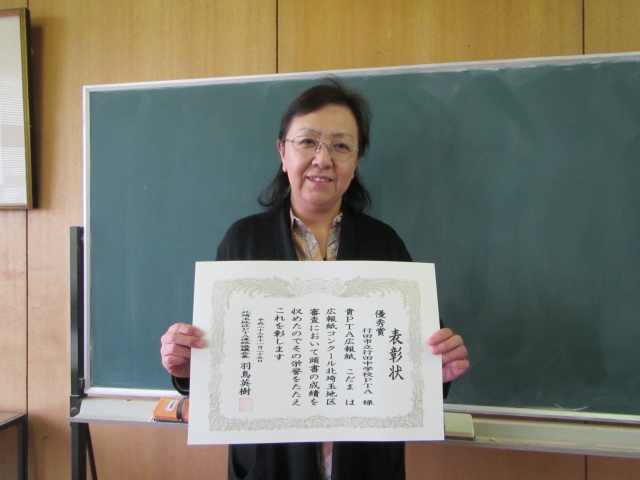 表彰状
優秀賞
行田市立行田中学校PTA 様
貴PTA広報紙 こだま は
広報紙コンクール北埼玉地区
審査において頭書の成績を
収めたのでその栄誉をたたえ
これを彰します
平成二十七年十一月二十五日
北埼玉地区PTA連絡協議会長 羽鳥英樹